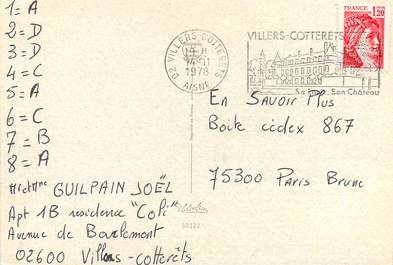 1 = A
2 = D
3 = D
4 = C
5 = A
6 = C
7 = B
8 = A
Mr et Mme GUILPAIN JOËL
Apt 1B residence "Coli"
Avenue de Bourlemont
02600 Villers-cotterêts
02 VILLERS-COTTERETS
14-11
1978
AISNE
VILLERS-COTTERETS
Son Château
FRANCE
1,20
En Savoir Plus
Boite cédex 867
75300 Paris Brune